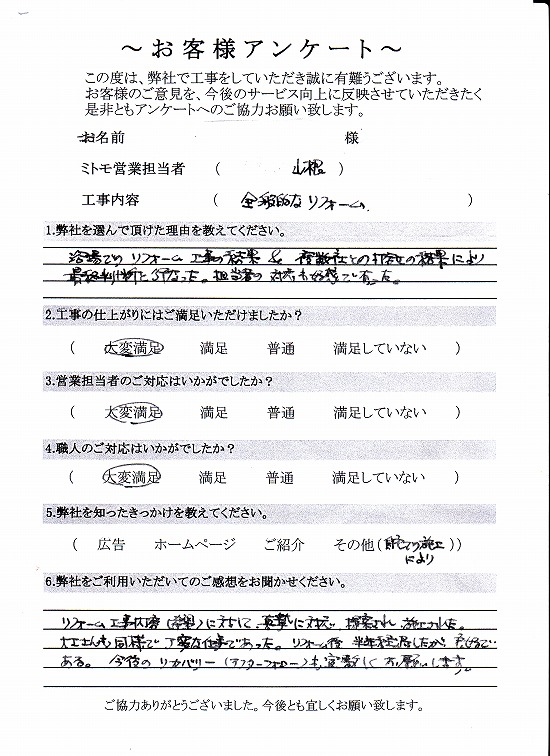 ～お客様アンケート～
この度は、弊社で工事をしていただき誠に有難うございます。
お客様のご意見を、今後のサービス向上に反映させていただきたく
是非ともアンケートへのご協力お願い致します。
お名前 様
ミトモ営業担当者 ( 山根 )
工事内容 ( 全般的なリフォーム )
1.弊社を選んで頂けた理由を教えてください。
浴場でのリフォーム工事の結果 複数社との 結果により
担当者の対応も
2.工事の仕上がりにはご満足いただけましたか？
( 大変満足 満足 普通 満足していない )
3.営業担当者のご対応はいかがでしたか？
( 大変満足 満足 普通 満足していない )
4.職人のご対応はいかがでしたか？
( 大変満足 満足 普通 満足していない )
5.弊社を知ったきっかけを教えてください。
( 広告 ホームページ ご紹介 その他( の施工 ))
により
6.弊社をご利用いただいてのご感想をお聞かせください。
リフォーム工事内容(希望)に対して 真摯に対応 提案され 施工された。
大工さんも同様で丁寧な仕事であった。リフォーム後 半年 したが
ある。今後のリカバリー(アフターフォロー)も宜敷しくお願いします。
ご協力ありがとうございました。今後とも宜しくお願い致します。